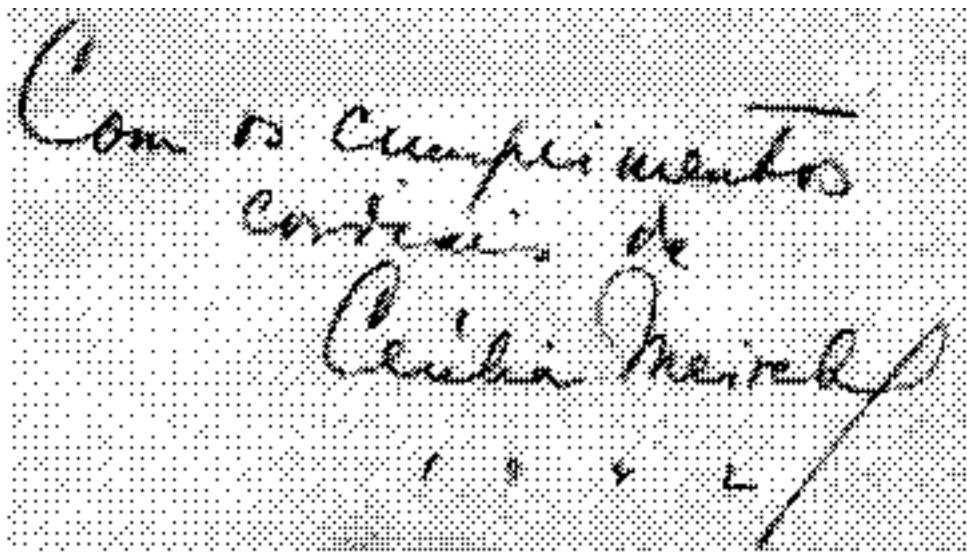 Com os cumprimentos
cordiais de
Cecília Meireles
1942